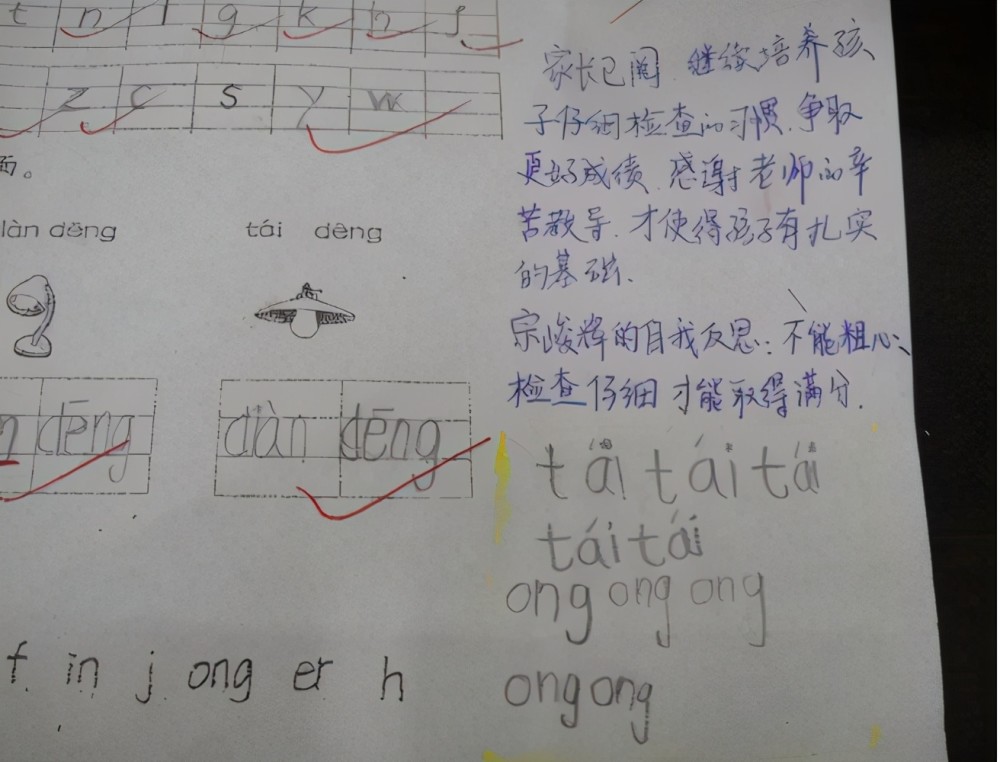 t n l g k h j
z c s y w
面。
家长已阅 继续培养孩
子仔细检查的习惯.争取
更好成绩.感谢老师的辛
苦教导.才使得孩子有扎实
的基础.
làn dēng tái dēng
宗峻辉的自我反思:不能粗心
检查仔细才能取得满分.
n dēng diàn dēng
tái tái tái
tái tái
ong ong ong
f in j ong er h
ong ong